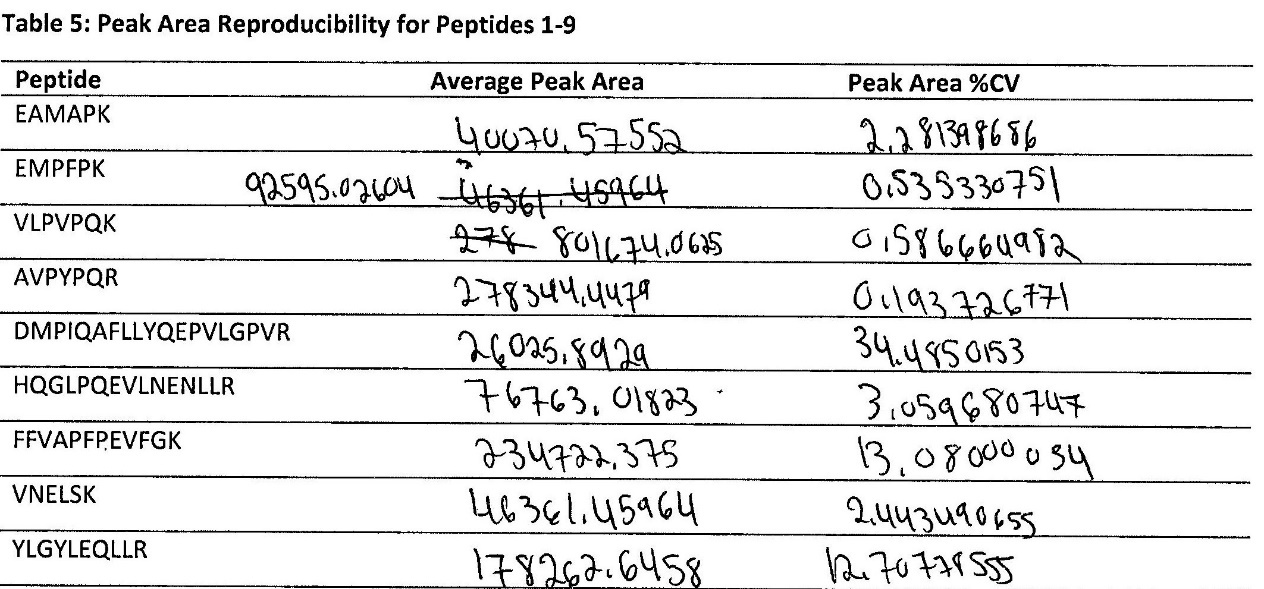 Table 5: Peak Area Reproducibility for Peptides 1-9
Peptide Average Peak Area Peak Area %CV
EAMAPK 40070.57552 2.281398686
EMPFPK 92595.02604 46361.45964 0.535330751
VLPVPQK 278 801674.0625 0.586664982
AVPYPQR 278344.4479 0.193726771
DMPIQAFLLYQEPVLGPVR 26025.8929 34.4850153
HQGLPQEVLNENLLR 76763.01823 3.059680747
FFVAPFPEVFGK 234722.375 13.08000034
VNELSK 46361.45964 2.443490655
YLGYLEQLLR 178262.6458 12.70778555